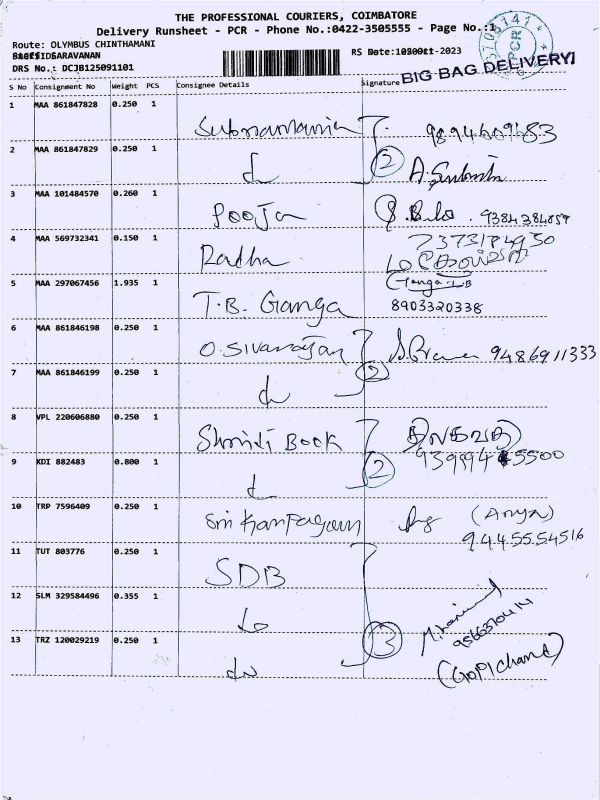 THE PROFESSIONAL COURIERS, COIMBATORE
Delivery Runsheet - PCR - Phone No.:0422-3505555 - Page No.:1
Route: OLYMBUS CHINTHAMANI
SARAVANAN
RS Date: -2023
DRS No.: DCJB125091101
PCR
BIG BAG DELIVERY
S No Consignment No Weight PCS Consignee Details Signature
1 MAA 861847828 0.250 1 Subramania 9894609583
2 MAA 861847829 0.250 1 2
3 MAA 101484570 0.260 1 Pooja 9384384859
4 MAA 569732341 0.150 1 Radha 7373184930
5 MAA 297067456 1.935 1 T.B. Ganga Ganga.L.B
8903320338
6 MAA 861846198 0.250 1 O. Sivarajan 9486911333
7 MAA 861846199 0.250 1 2
8 VPL 220606880 0.250 1 Book
9 KDI 882483 0.800 1 2
10 TRP 7596409 0.250 1 Sri (Anya)
9445554516
11 TUT 803776 0.250 1 SDB
12 SLM 329584496 0.355 1
13 TRZ 120029219 0.250 1 3
(Gopichand)